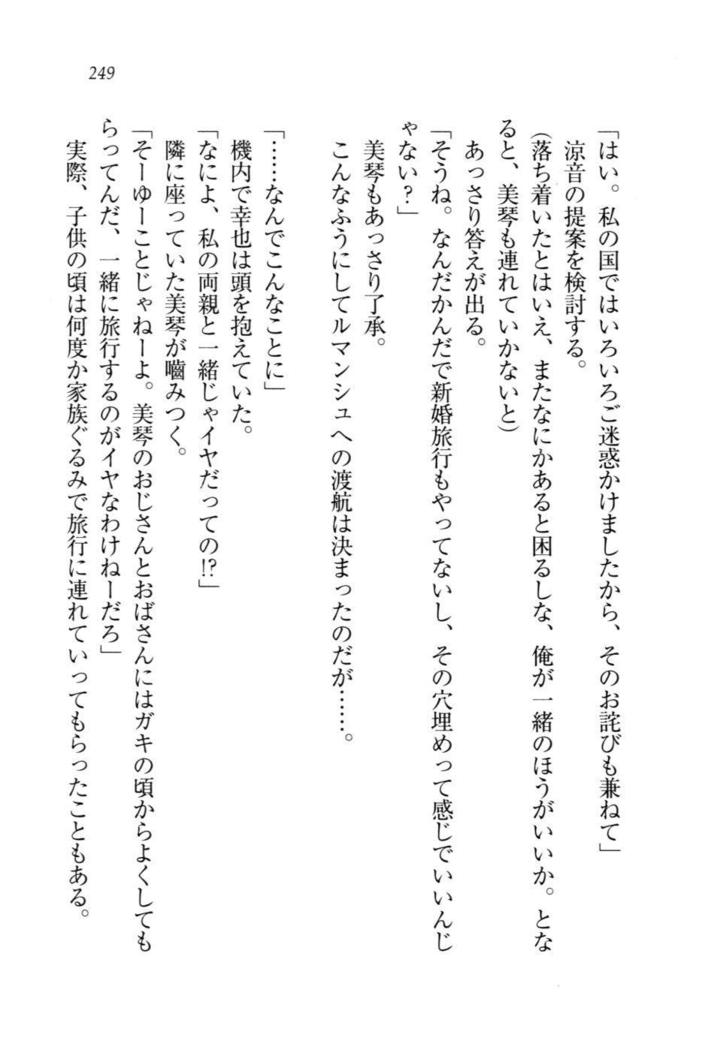 249
「はい。私の国ではいろいろご迷惑かけましたから、そのお詫びも兼ねて」
涼音の提案を検討する。
(落ち着いたとはいえ、またなにかあると困るしな、俺が一緒のほうがいいか。とな
ると、美琴も連れていかないと)
あっさり答えが出る。
「そうね。なんだかんだで新婚旅行もやってないし、その穴埋めって感じでいいんじ
ゃない?」
美琴もあっさり了承。
こんなふうにしてルマンシュへの渡航は決まったのだが……。
「……なんでこんなことに」
機内で幸也は頭を抱えていた。
「なによ、私の両親と一緒じゃイヤだっての!?」
隣に座っていた美琴が嚙みつく。
「そーゆーことじゃねーよ。美琴のおじさんとおばさんにはガキの頃からよくしても
らってんだ、一緒に旅行するのがイヤなわけねーだろ」
実際、子供の頃は何度か家族ぐるみで旅行に連れていってもらったこともある。